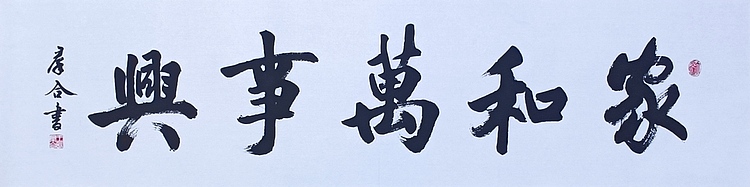 家和萬事興
群合書